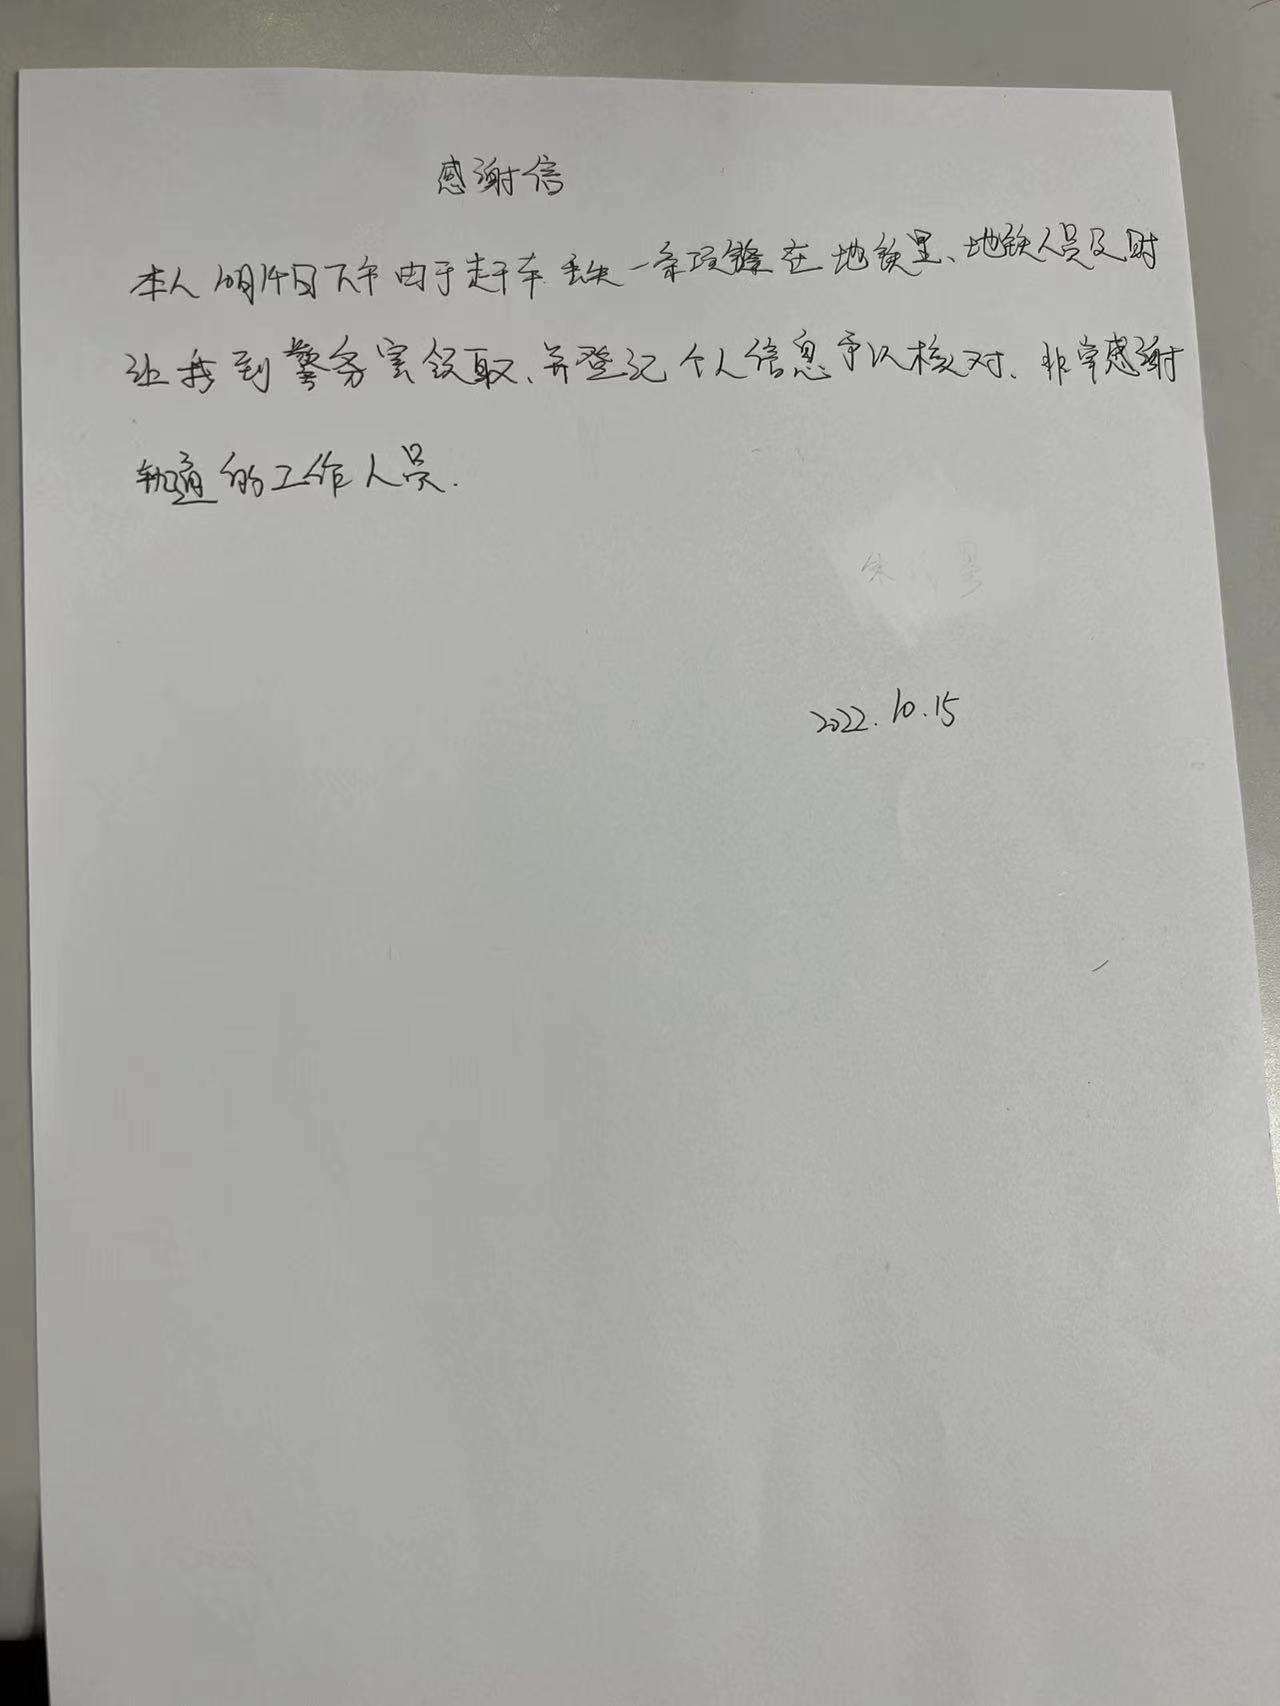 感谢信
本人10月14日下午由于赶车丢失一条项链在地铁里、地铁人员及时
让我到警务室领取、并登记个人信息予以核对、非常感谢
轨道的工作人员.
2022.10.15